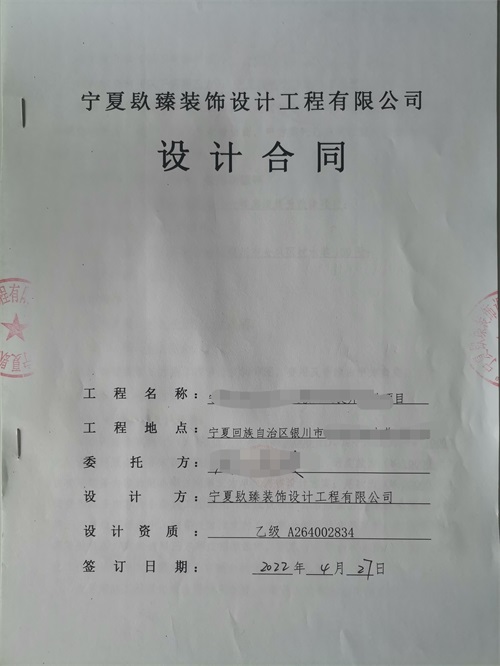 宁夏镹臻装饰设计工程有限公司
设计合同
工程名称：宁 项目
工程地点：宁夏回族自治区银川市
委托方：
设计方：宁夏镹臻装饰设计工程有限公司
设计资质：乙级 A264002834
签订日期：2022年4月27日
程有
宁夏